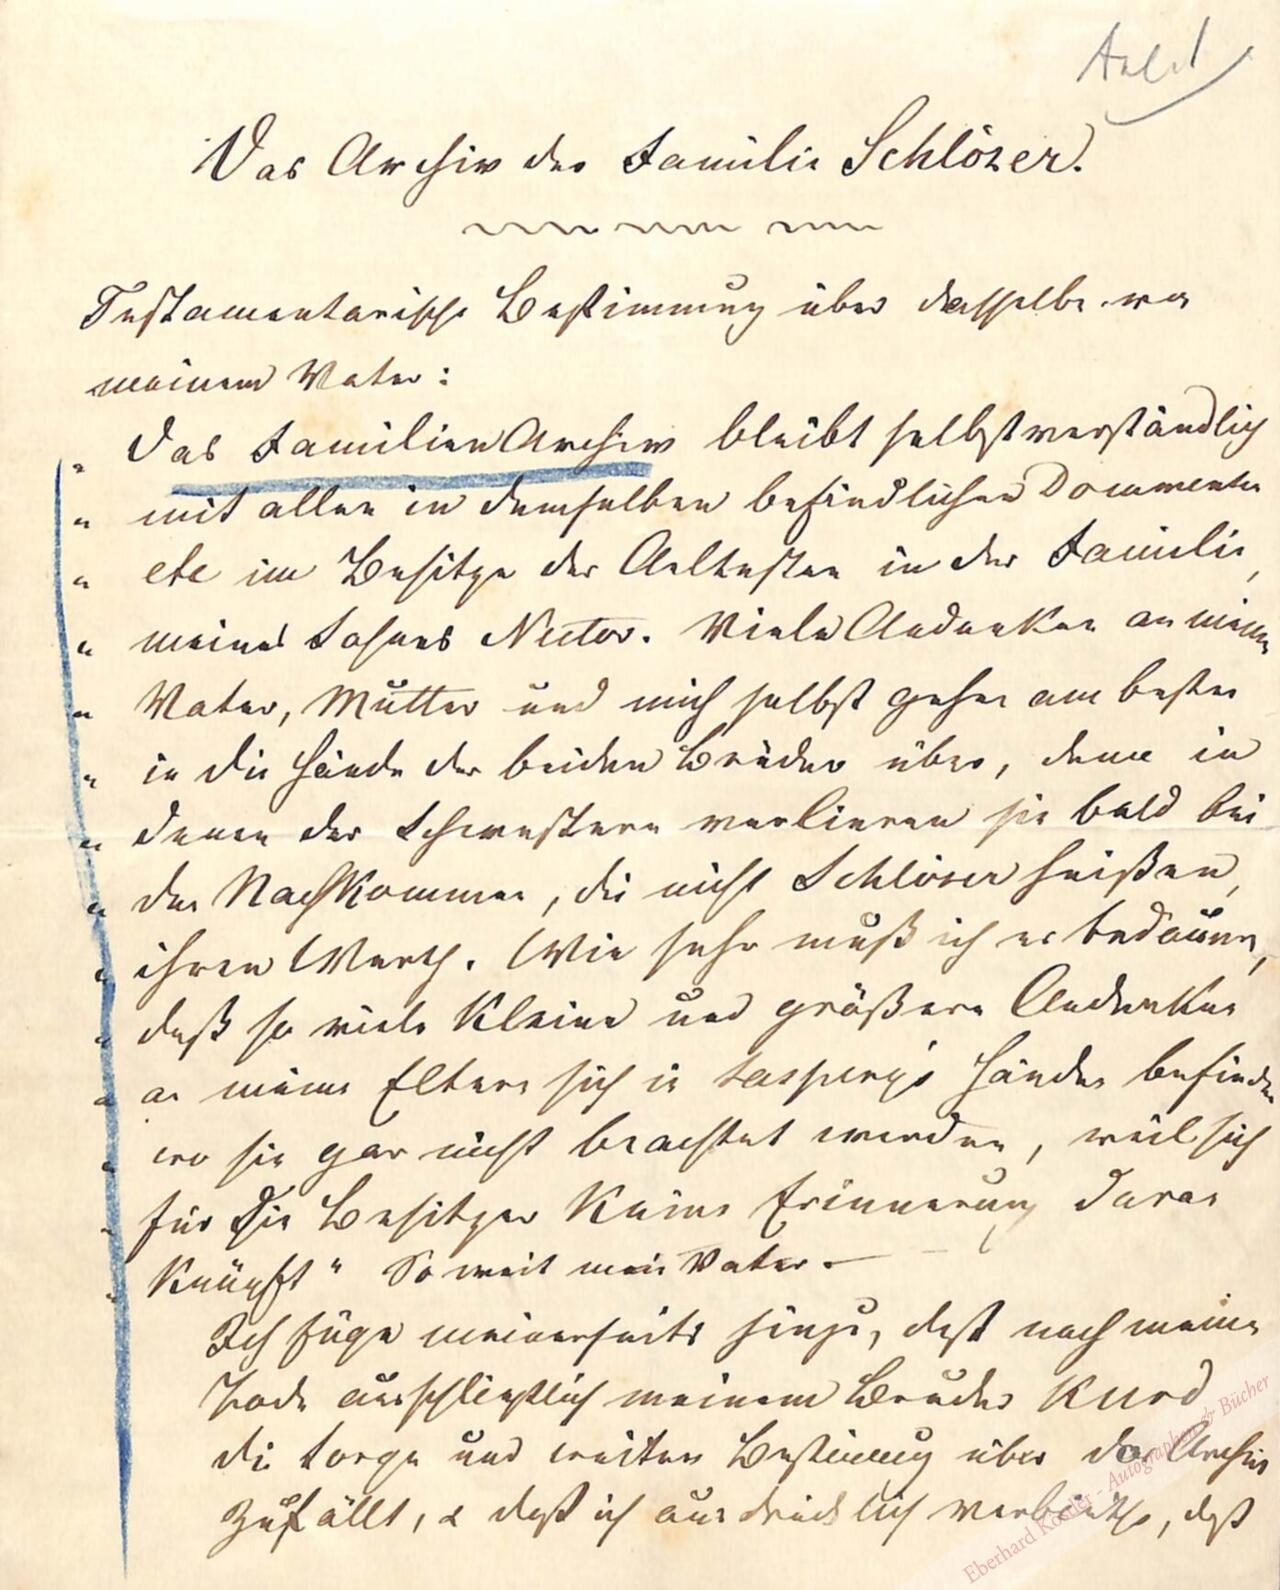 Das Archiv der Familie Schlözer.
Testamentarische Bestimmung über dasselbe von
meinem Vater:
„ Das Familien Archiv bleibt selbstverständlich
„ mit allen in demselben befindlichen Documenten
„ etc im Besitze des Aeltesten in der Familie,
„ meines Sohnes Nestor. Viele Andenken an meinen
„ Vater, Mutter und mich selbst gehen am besten
„ in die Hände der beiden Brüder über, denn in
„ denen der Schwestern verlieren sie bald bei
„ den Nachkommen, die nicht Schlözer heißen,
„ ihren Werth. Wie sehr muß ich es bedauern,
„ daß so viele kleine und größere Andenken
„ an meine Eltern sich in Händen befinden
„ wo sie gar nicht beachtet werden, weil sich
„ für die Besitzer keine Erinnerung daran
„ knüpft " So weit mein Vater. —
Ich füge meinerseits hinzu, daß nach meinem
Tode ausschließlich meinem Bruder Kurd
die Sorge und weitere Bestimmung über das Archiv
zufällt, & daß ich ausdrücklich verbiethe, daß
Eberhard Köstler - Autographen & Bücher